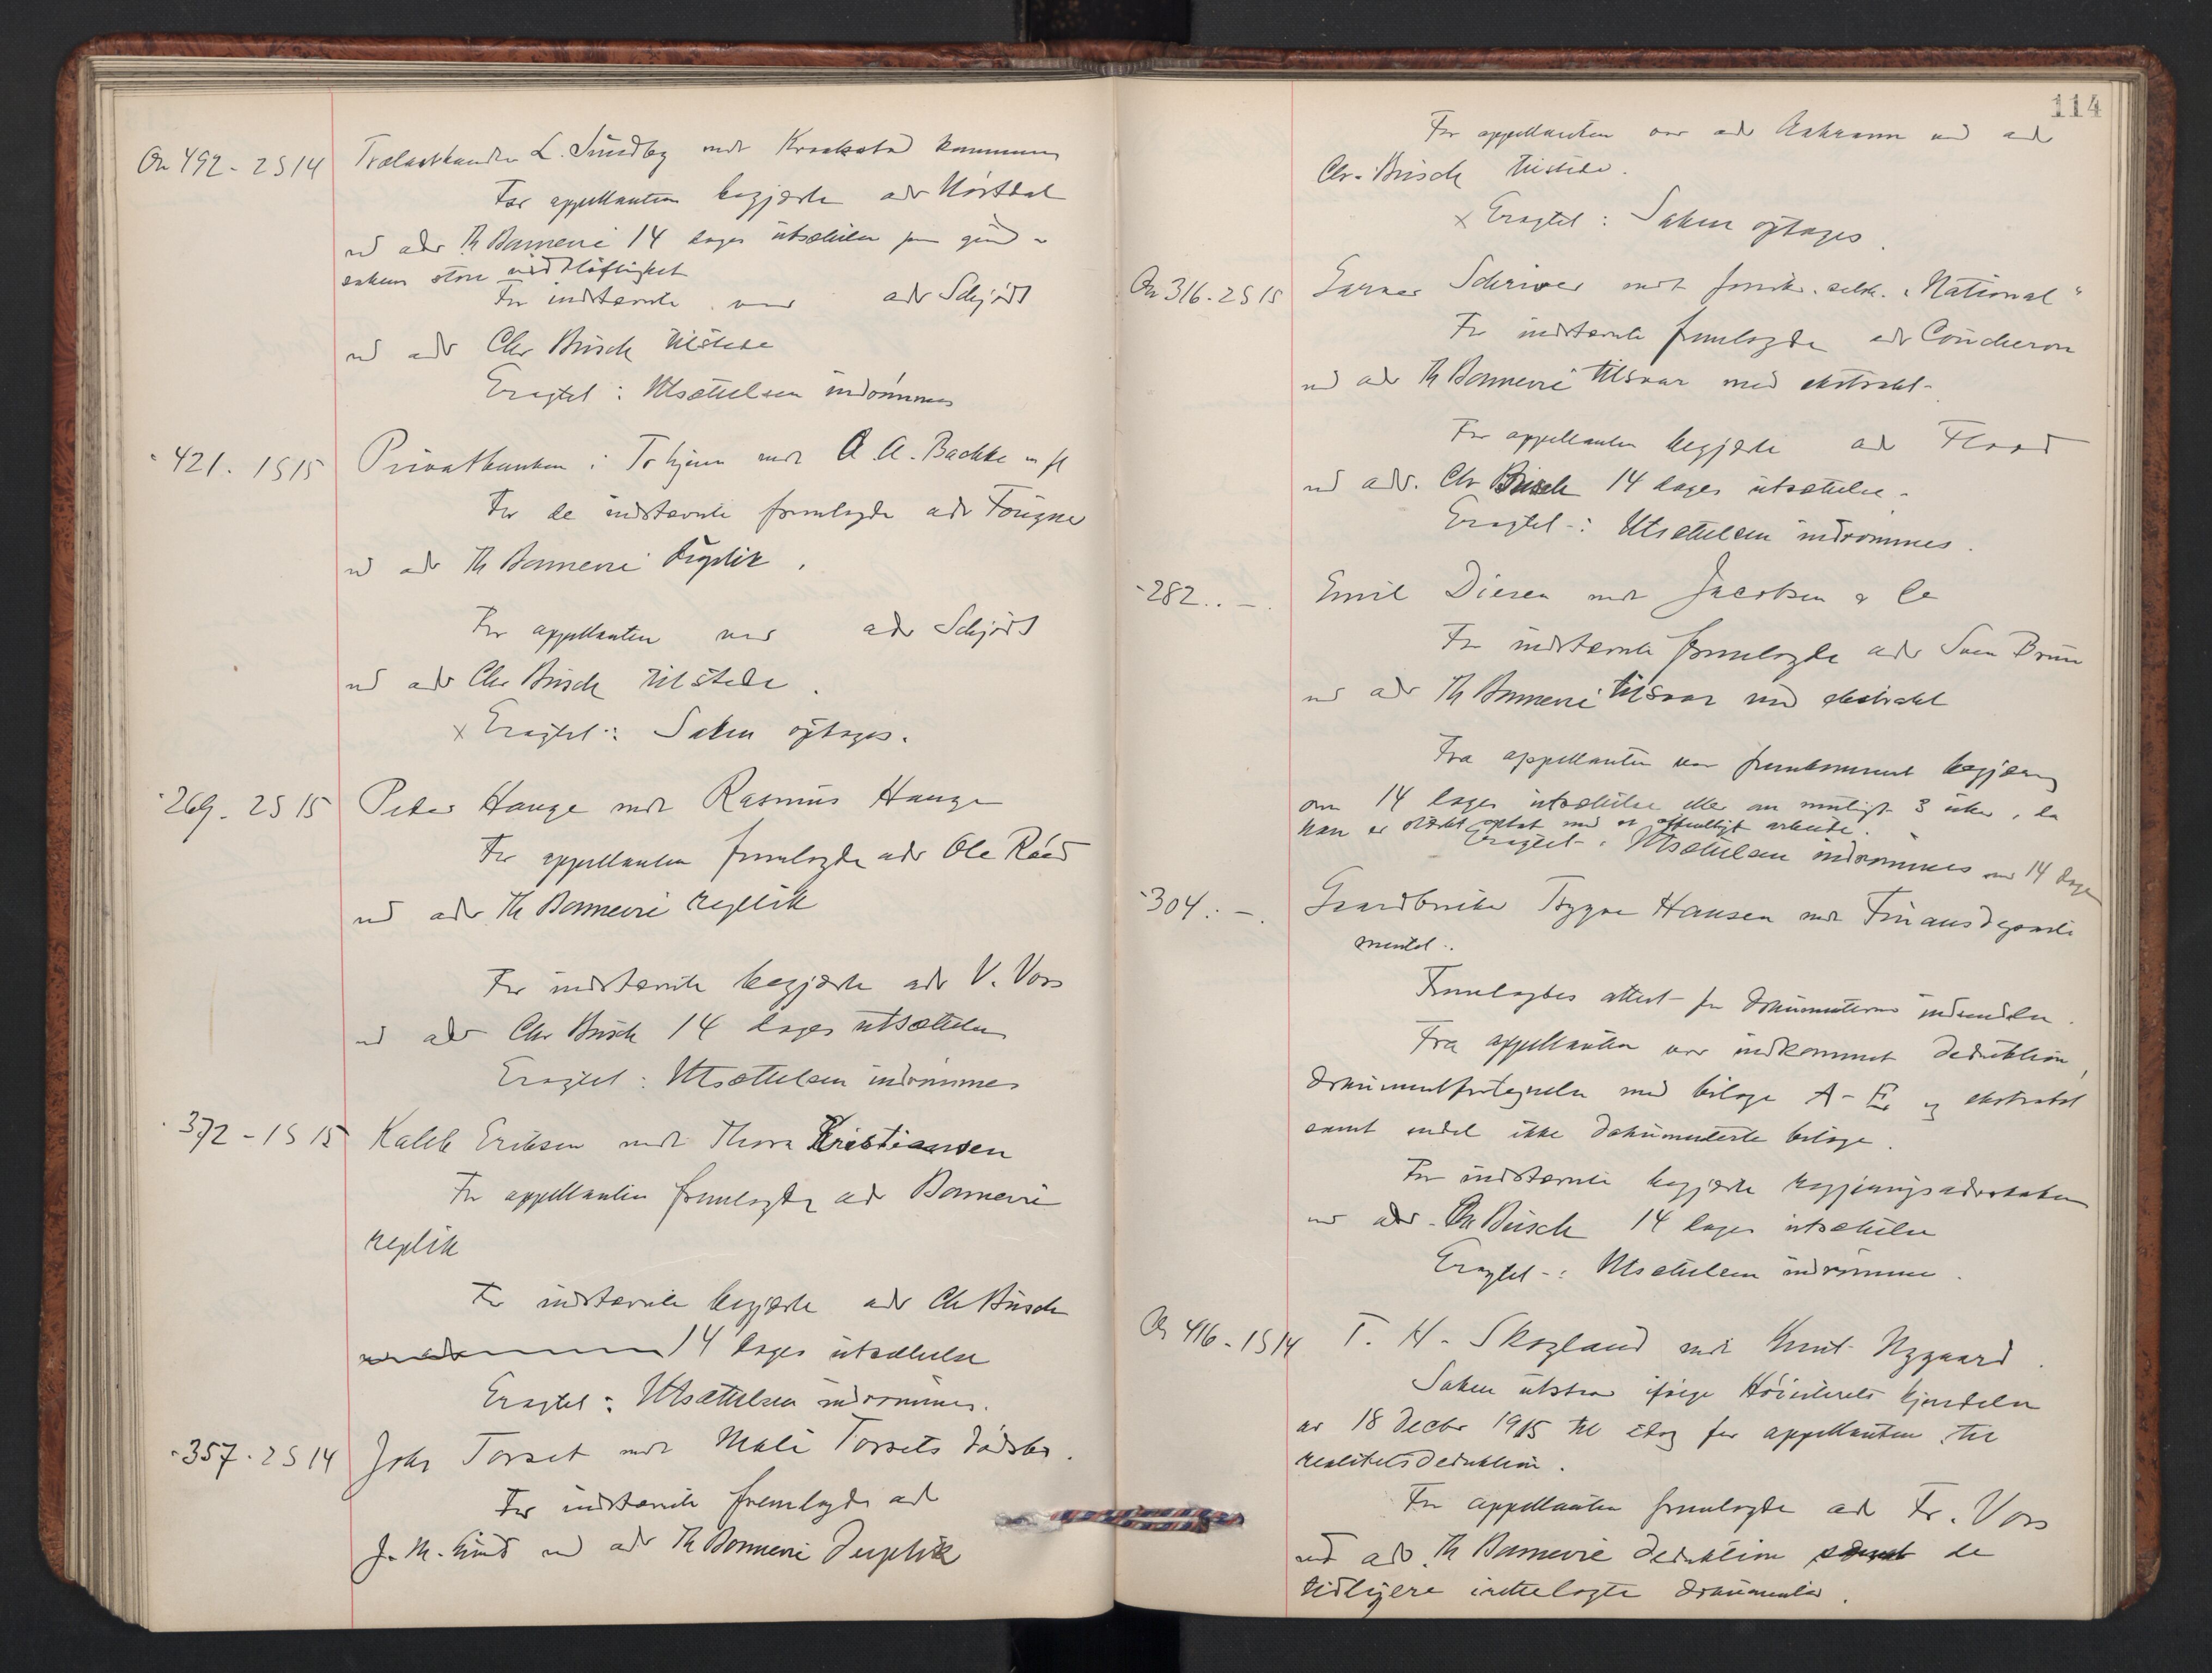 On 492 - 2S14 Trælasthandler L. Sundby mot Kraakstad kommune
For appellanten begjærte adv Hörtdal
ved adv Th Bonnevie 14 dages utsættelse paa grund -
sakens store vidtløftighet
For indstevnte var adv Schjødt
ved adv Chr Busch tilstede
Eragtet : Utsættelsen indrømmes
" 421. 1S15 Privatbanken i Trhjem mot A. A. Bachke m fl
For de indstevnte fremlagde adv Fougner
ved adv Th Bonnevie duplik.
For appellanten var adv Schjødt
ved adv Chr Busch tilstede.
x Eragtet : Saken optages.
" 269. 2S15 Peder Hauge mot Rasmus Hauge
For appellanten fremlagde adv Ole Røed
ved adv Th Bonnevie replik
For indstevnte begjærte adv V. Voss
ved adv Chr Busch 14 dages utsættelse
Eragtet : Utsættelsen indrømmes
" 372 - 1S15 Kaleb Eriksen mot Thora Kristiansen
For appellanten fremlagde adv Bonnevie
replik
For indstevnte begjærte adv Chr Busch
14 dages utsættelse
Eragtet : Utsættelsen indrømmes.
" 357. 2S14 John Torset mot Mali Torsets dødsbo.
For indstevnte fremlagde adv
J. M. Lund ved adv Th Bonnevie Duplik
114
For appellanten var adv Aakrann ved adv
Chr. Busch tilstede.
x Eragtet : Saken optages.
On 316. 2S15 Garver Schriver mot forsikr. selsk. "National"
For indstevnte fremlagde adv Coucheron
ved adv Th Bonnevie tilsvar med ekstrakt.
For appellanten begjærte adv Flood
ved adv. Chr Busch 14 dages utsættelse.
Eragtet : Utsættelsen indrømmes.
" 282. . - . Emil Diesen mot Jacobsen & Co
For indstevnte fremlagde adv Sven Bruun
ved adv Th Bonnevie tilsvar med ekstrakt
Fra appellanten var fremkommet begjæring
om 14 dages utsættelse eller om muligt 3 uker, da
han er stærkt optat med et offentligt arbeide.
Eragtet : Utsættelsen indrømmes med 14 dage
" 304. - . Gaardbruker Trygve Hansen mot Finansdeparte
mentet.
Fremlagdes attest for dokumenternes indsendelse.
Fra appellanten var indkommet deduktion,
dokumentfortegnelse med bilage A - E og ekstrakt
samt endel ikke dokumenterte bilage.
For indstevnte begjærte regjeringsadvokaten
ved adv. Chr Busch 14 dages utsættelse
Eragtet : Utsættelsen indrømmes.
On 416 - 1S14 T. H. Skogland mot Knut Nygaard.
Saken utstaar ifølge Høiesterets kjendelse
av 18 Decbr 1915 til idag for appellanten til
realitetsdeduktion.
For appellanten fremlagde adv Fr. Voss
ved adv Th Bonnevie deduktion samt de
tidligere irettelagte dokumenter.